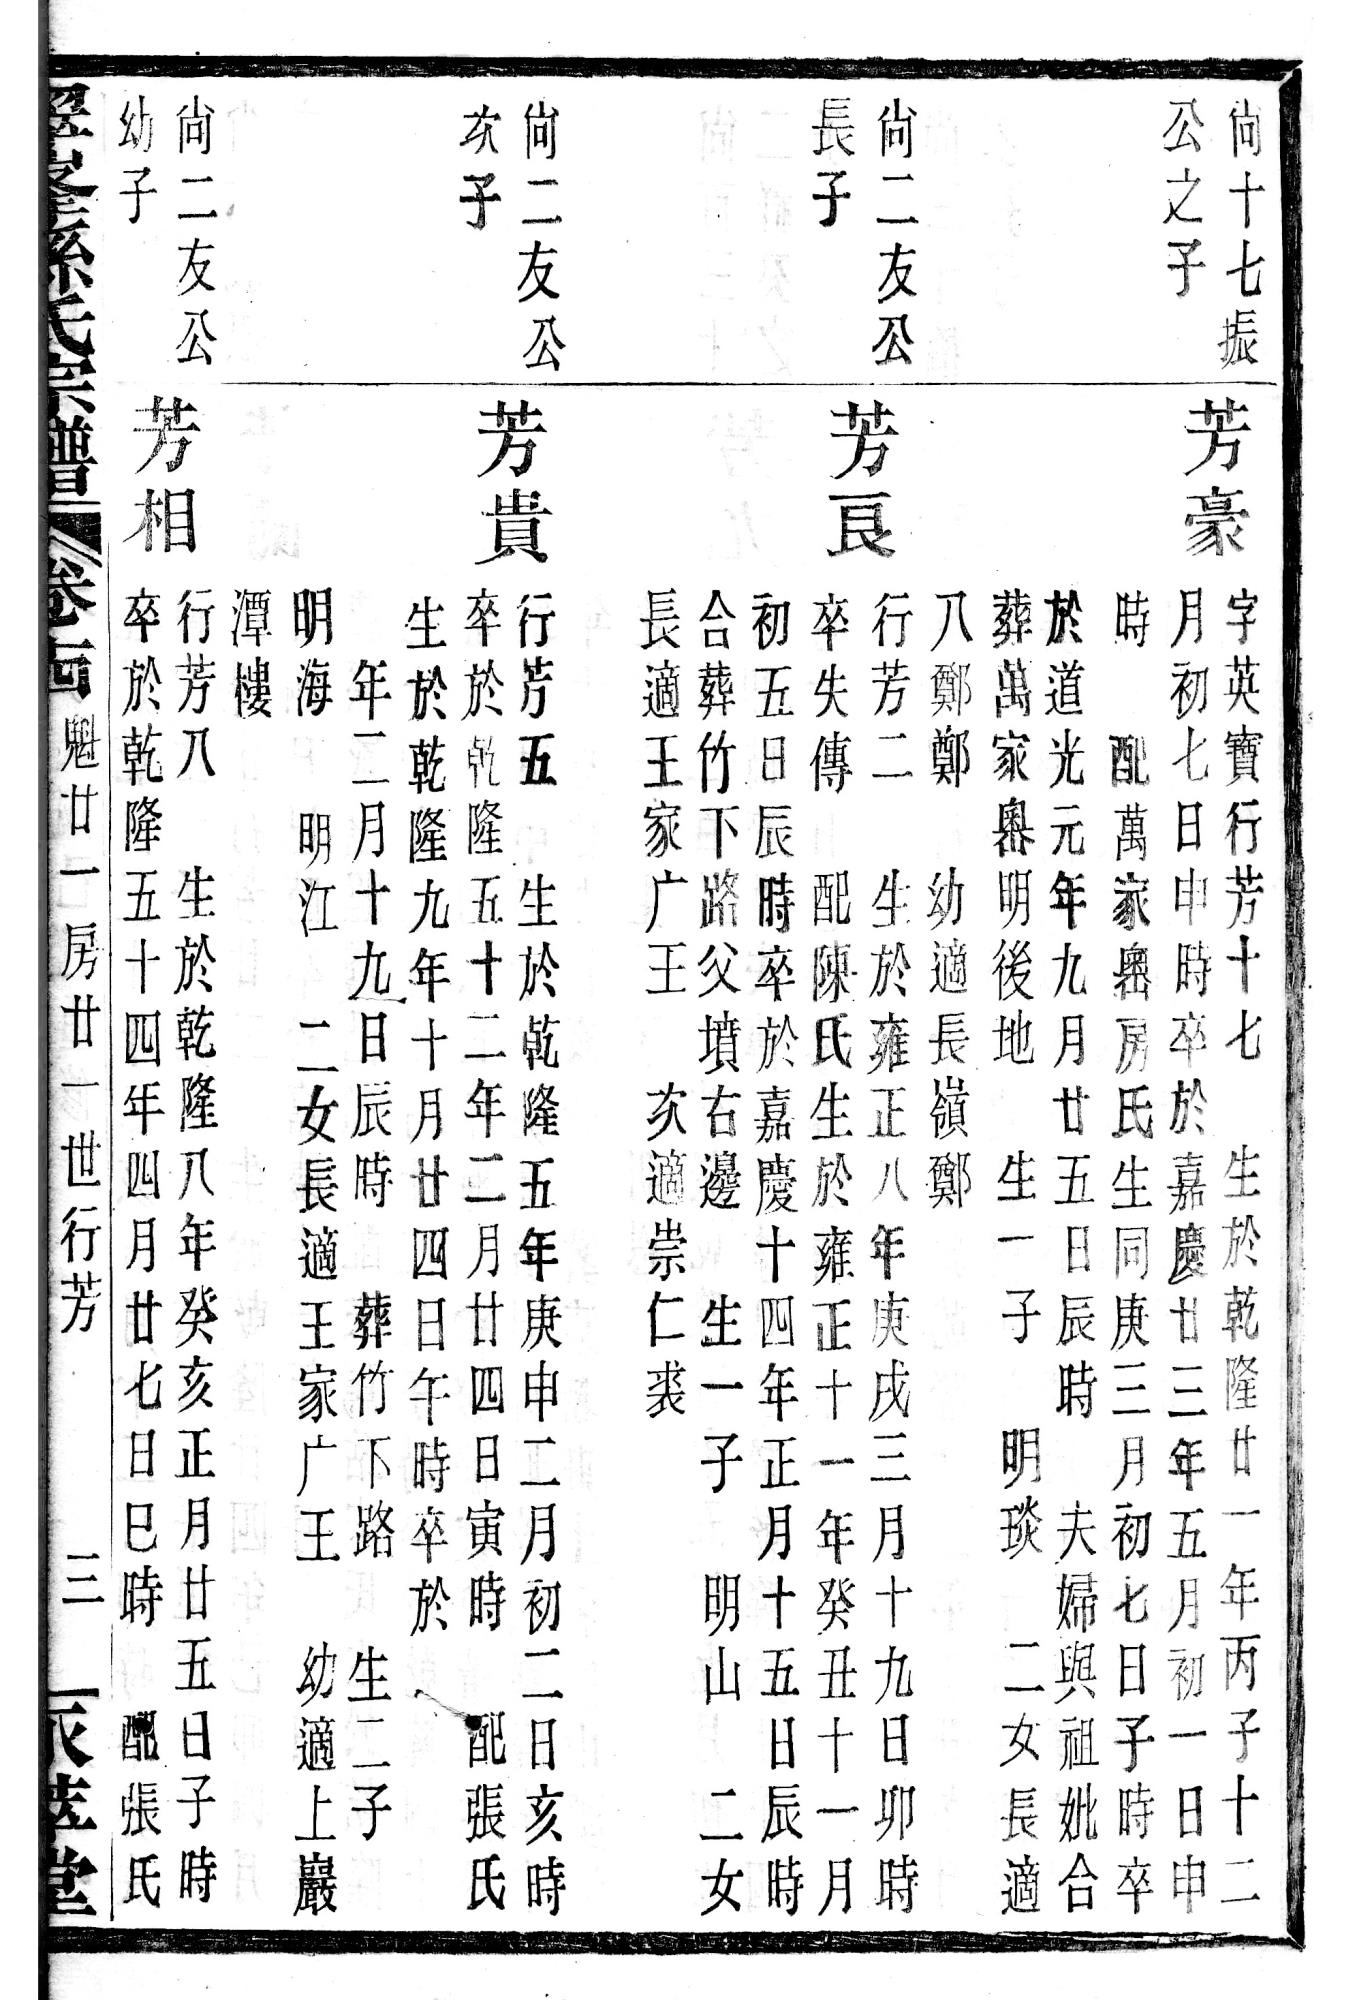 尙十七振
公之子
芳豪
字英寶行芳十七　生於乾隆廿一年丙子十二
月初七日申時卒於嘉慶廿三年五月初一日申
時　配萬家嶴房氏生同庚三月初七日子時卒
於道光元年九月廿五日辰時　夫婦與祖妣合
葬萬家嶴明後地　生一子　明琰　二女長適
八鄭鄭　幼適長嶺鄭
尙二友公
長子
芳良
行芳二　生於雍正八年庚戌三月十九日卯時
卒失傳　配陳氏生於雍正十一年癸丑十一月
初五日辰時卒於嘉慶十四年正月十五日辰時
合葬竹下路父墳右邊　生一子　明山　二女
長適王家广王　次適崇仁裘
尙二友公
次子
芳貴
行芳五　生於乾隆五年庚申二月初二日亥時
卒於乾隆五十二年二月廿四日寅時　配張氏
生於乾隆九年十月廿四日午時卒於
年二月十九日辰時　葬竹下路　生二子
明海　明江　二女長適王家广王　幼適上巖
潭樓
尙二友公
幼子
芳相
行芳八　生於乾隆八年癸亥正月廿五日子時
卒於乾隆五十四年四月廿七日巳時　配張氏
孫氏宗譜　卷西　魁廿一房廿一世行芳　三　萃堂